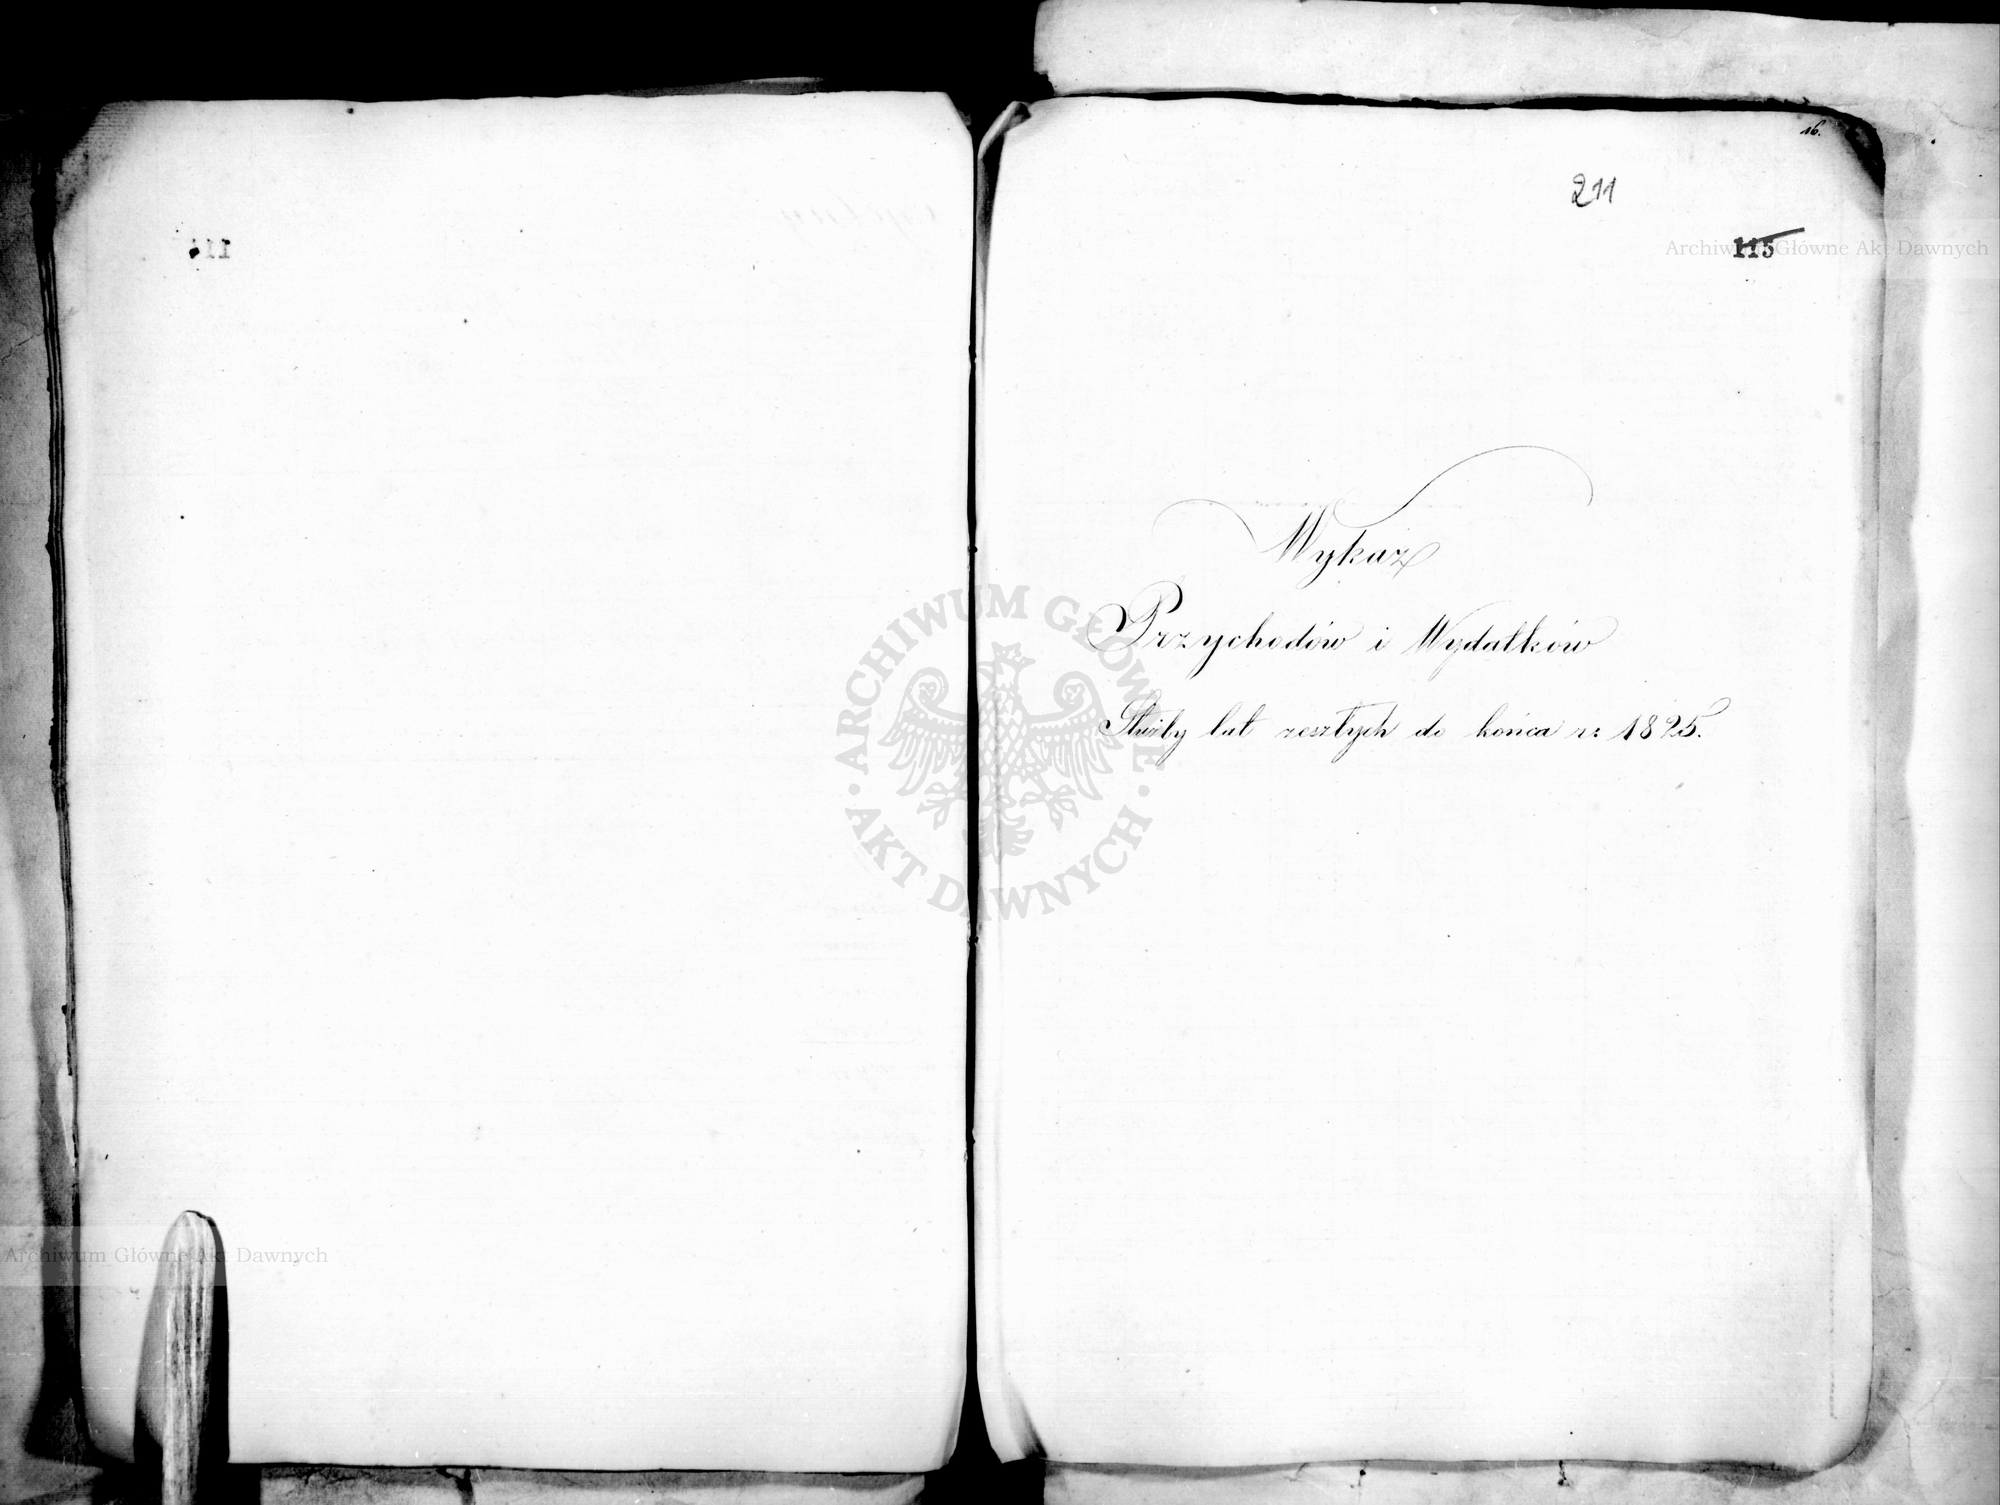 16.
211
115
Archiwum Główne Akt Dawnych
Wykaz
Przychodów i Wydatków
Służby lat zeszłych do końca r: 1825.
ARCHIWUM GŁÓWNE
AKT DAWNYCH
Archiwum Główne Akt Dawnych